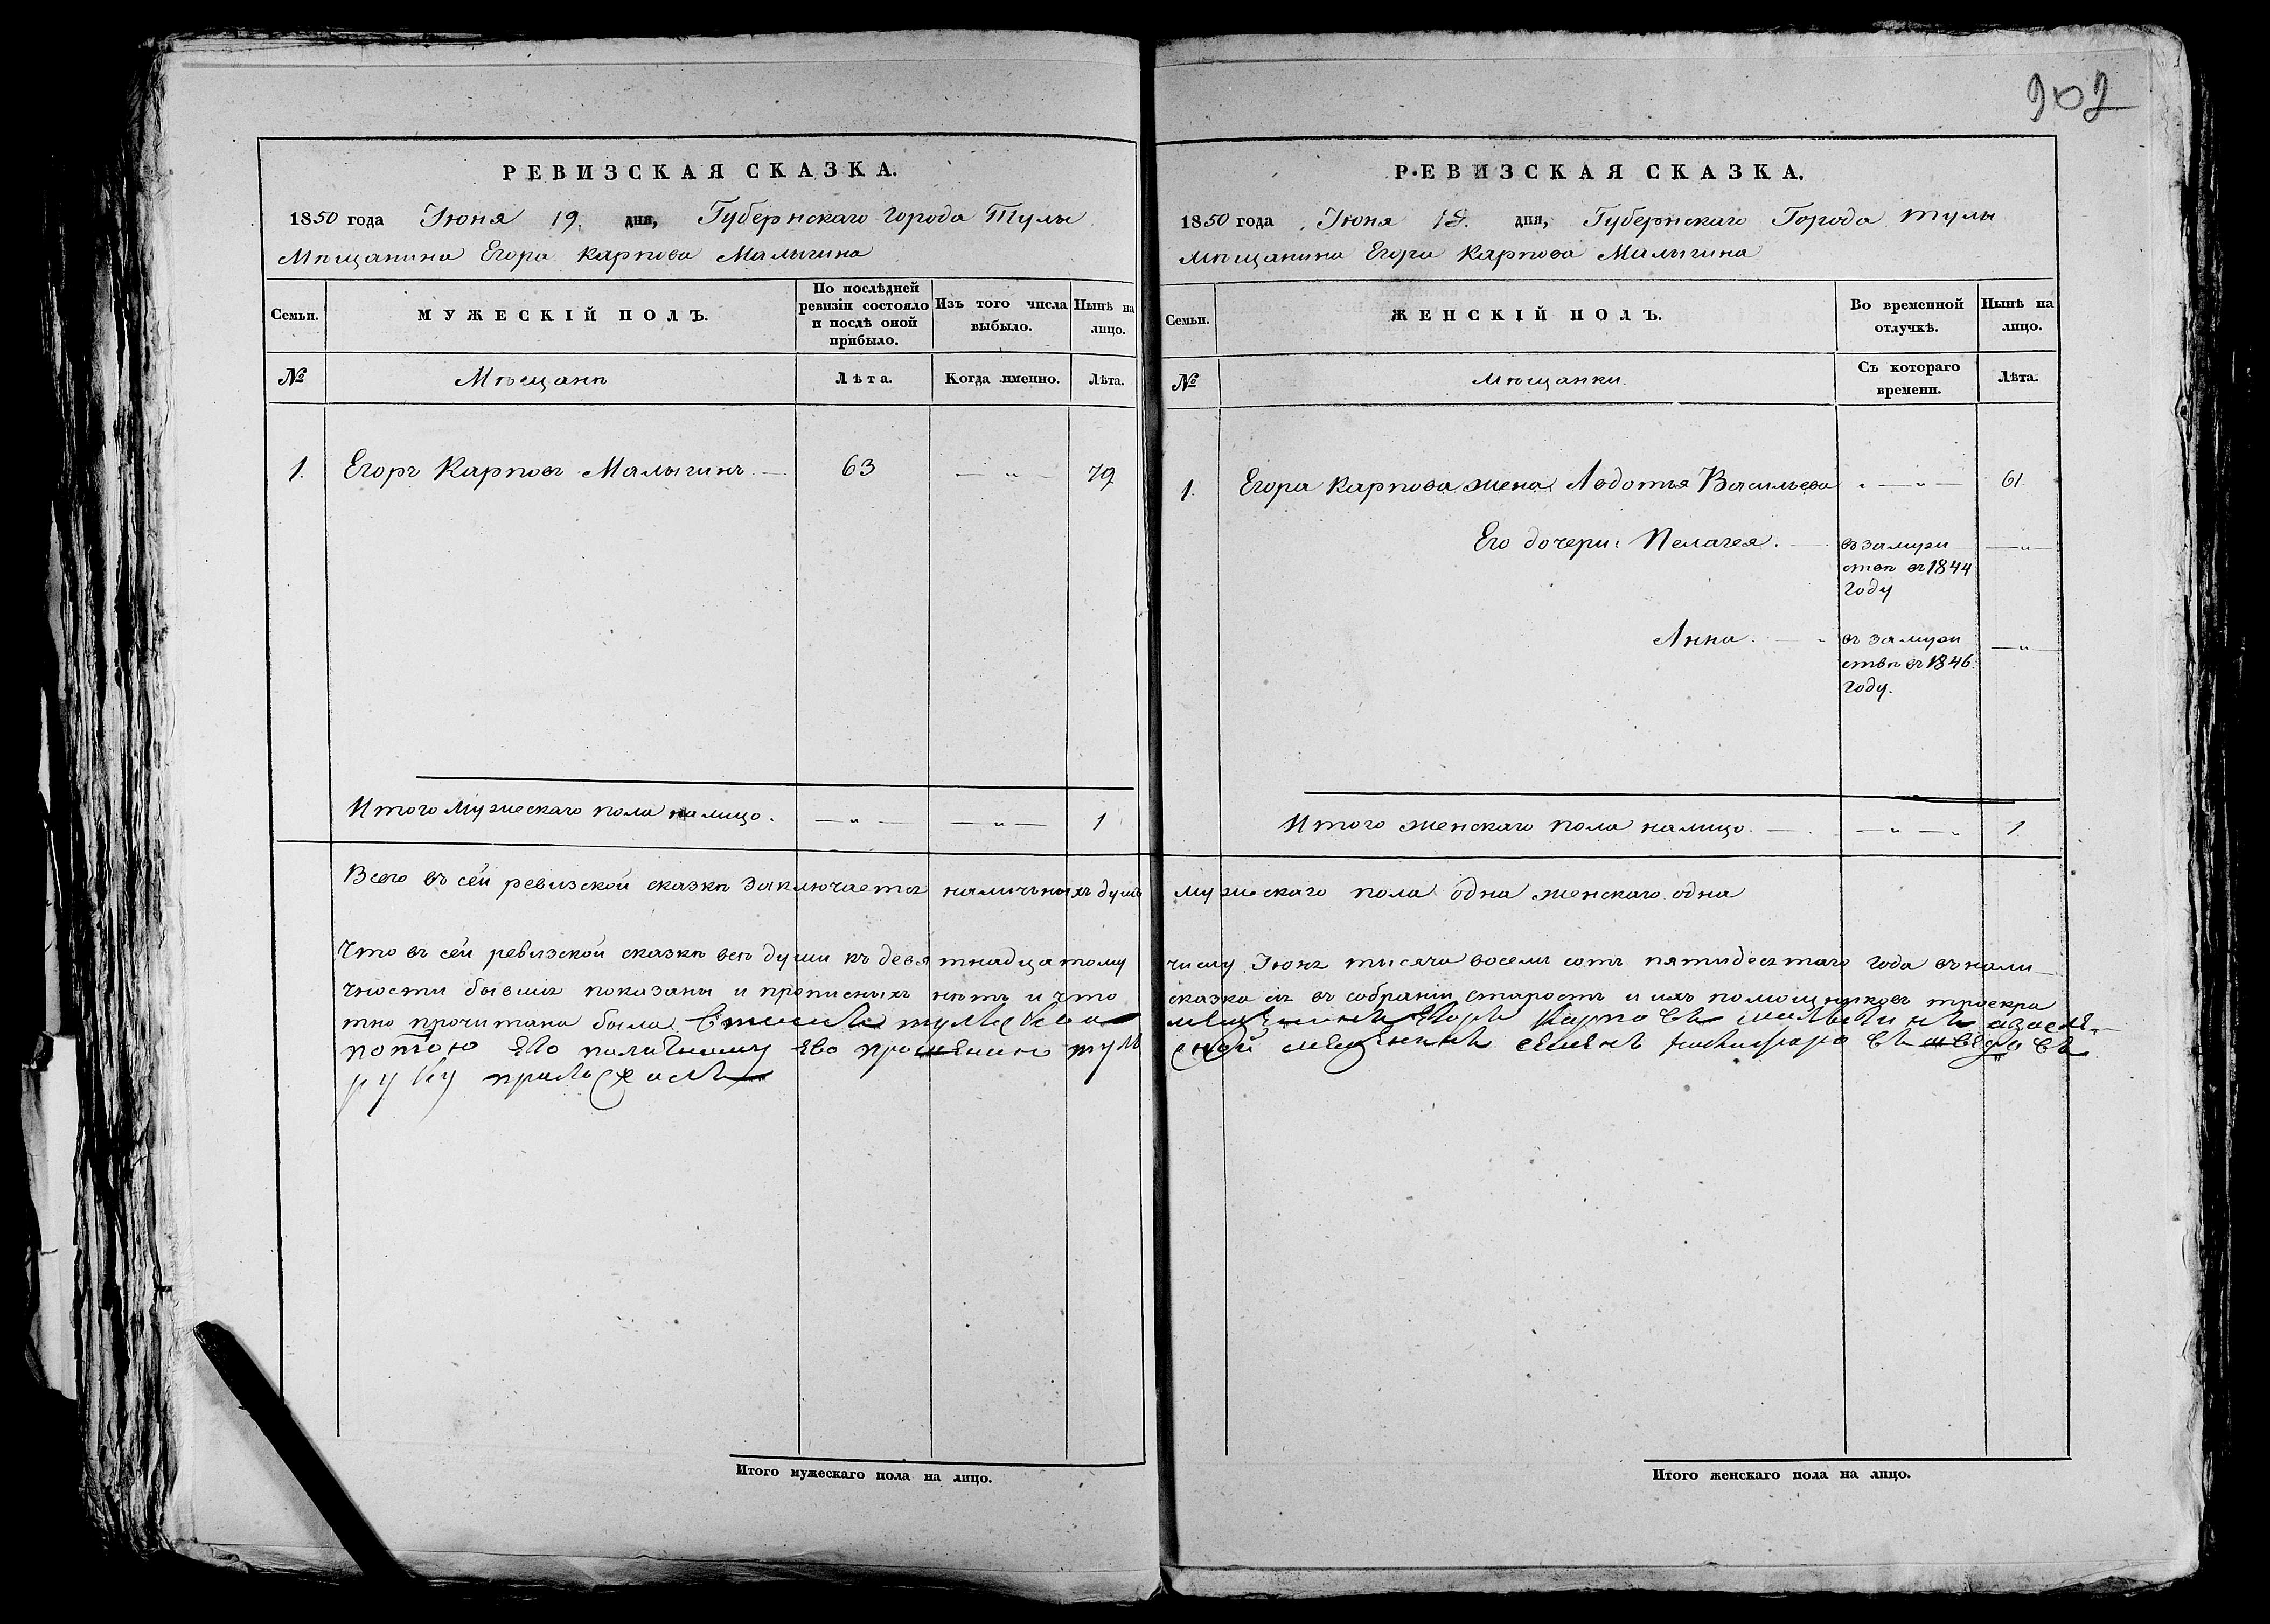 902
РЕВИЗСКАЯ СКАЗКА.
1850 года Іюня 19. дня, Губернскаго города Тулы
Мѣщанина Егора Карпова Малыгина
Семьи.
МУЖЕСКІЙ ПОЛЪ.
По послѣдней ревизіи состояло и послѣ оной прибыло.
Изъ того числа выбыло.
Нынѣ на лицо.
№
Мѣщанѣ
Лѣта.
Когда именно.
Лѣта.
1. Егоръ Карповъ Малыгинъ. — 63 — „ — 79
Итого Мужескаго пола на лицо. — „ — — „ — 1
РЕВИЗСКАЯ СКАЗКА.
1850 года Іюня 19. дня, Губернскаго Города Тулы
Мѣщанина Егора Карпова Малыгина
Семьи.
ЖЕНСКІЙ ПОЛЪ.
Во временной отлучкѣ.
Нынѣ на лицо.
№
Мѣщанки.
Съ котораго времени.
Лѣта.
1. Егора Карпова жена Авдотья Васильева „ — „ — 61
Его дочери: Пелагея. — въ замужи — „ —
ствѣ съ 1844
году
Анна. — въ замужи — „ —
ствѣ съ 1846
году.
Итого женскаго пола налицо. — — „ — „ 1
Всего въ сей ревизской сказкѣ заключается наличныхъ душъ мужескаго пола одна женскаго одна
Что въ сей ревизской сказкѣ всѣ души къ девятнадцатому числу Іюня тысяча восемь сотъ пятидесятаго года въ нали
чности бывшія показаны и прописныхъ нѣтъ и что сказка сія въ собраніи старостъ и ихъ помощниковъ троекра
тно прочитана была. мещенинъ Егоръ Карповъ малыгинъ
его прошению мещенинъ семенъ
руку приложилъ
Итого мужескаго пола на лицо.
Итого женскаго пола на лицо.